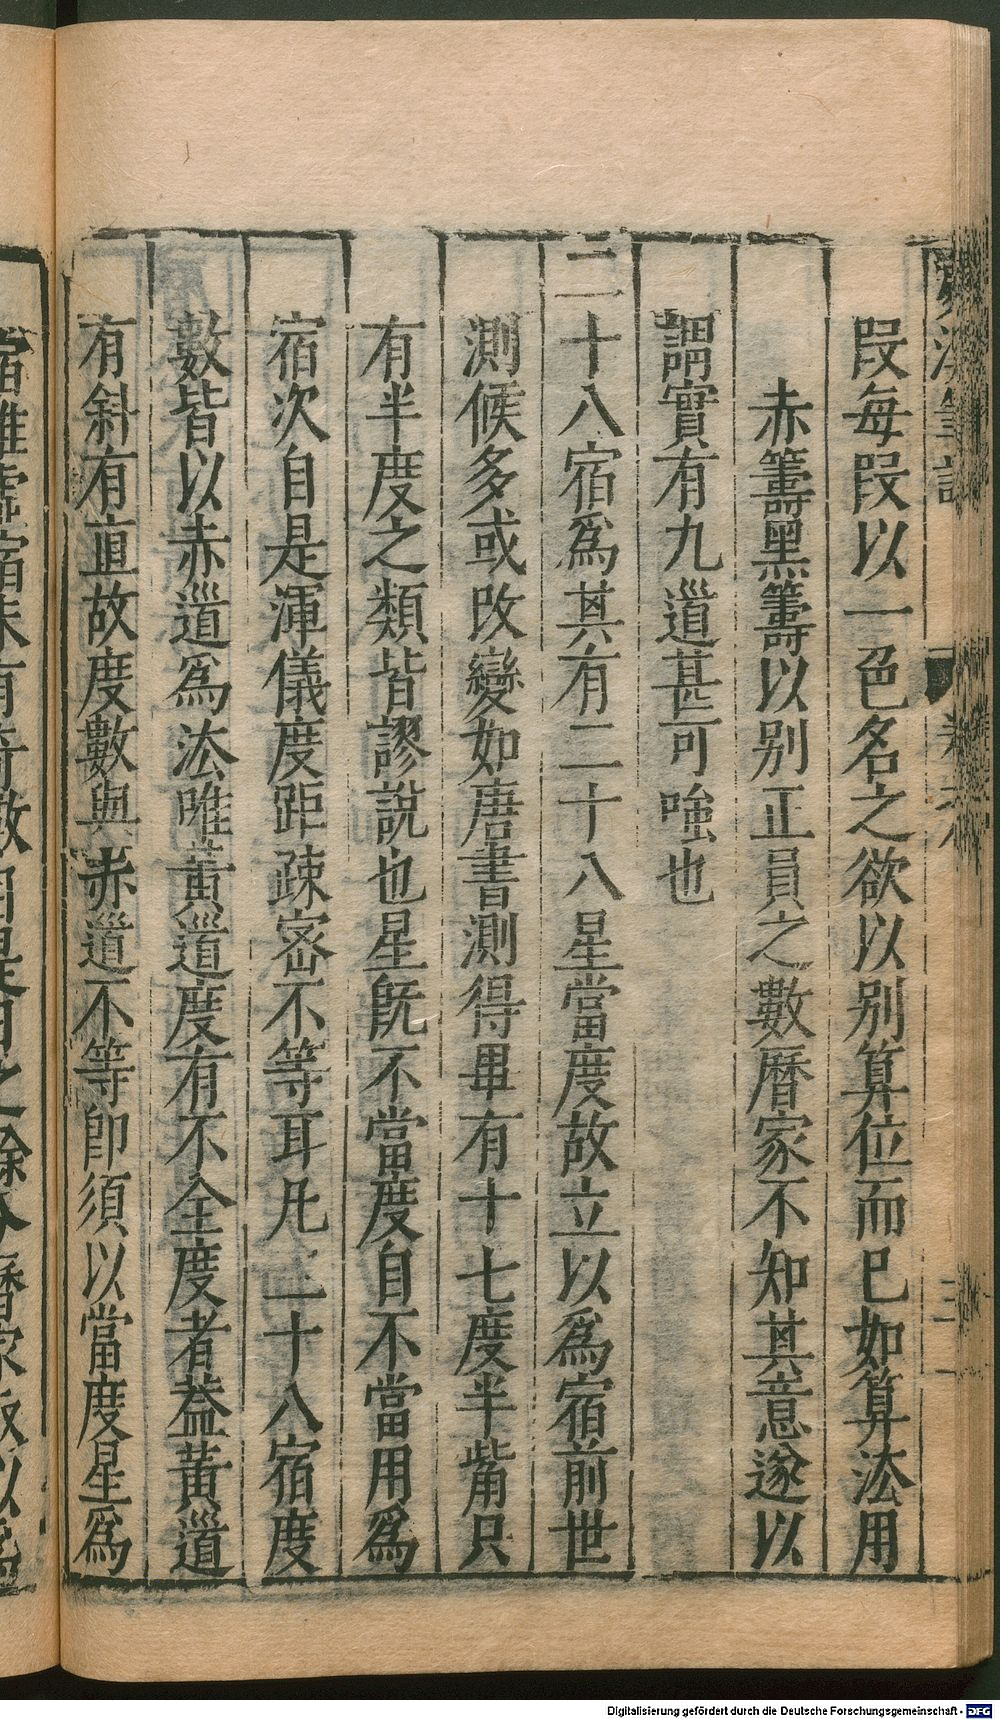 段每段以一色名之欲以别算位而已如算法用
赤籌黑籌以别正員之數曆家不知其意遂以
謂實有九道甚可嗤也
二十八宿爲其有二十八星當度故立以爲宿前世
測候多或改變如唐書測得畢有十七度半觜只
有半度之類皆謬說也星旣不當度自不當用爲
宿次自是渾儀度距疎宻不等耳凡二十八宿度
數皆以赤道爲法唯黄道度有不全度者葢黄道
有斜有直故度數與赤道不等卽須以當度星爲
Digitalisierung gefördert durch die Deutsche Forschungsgemeinschaft - DFG